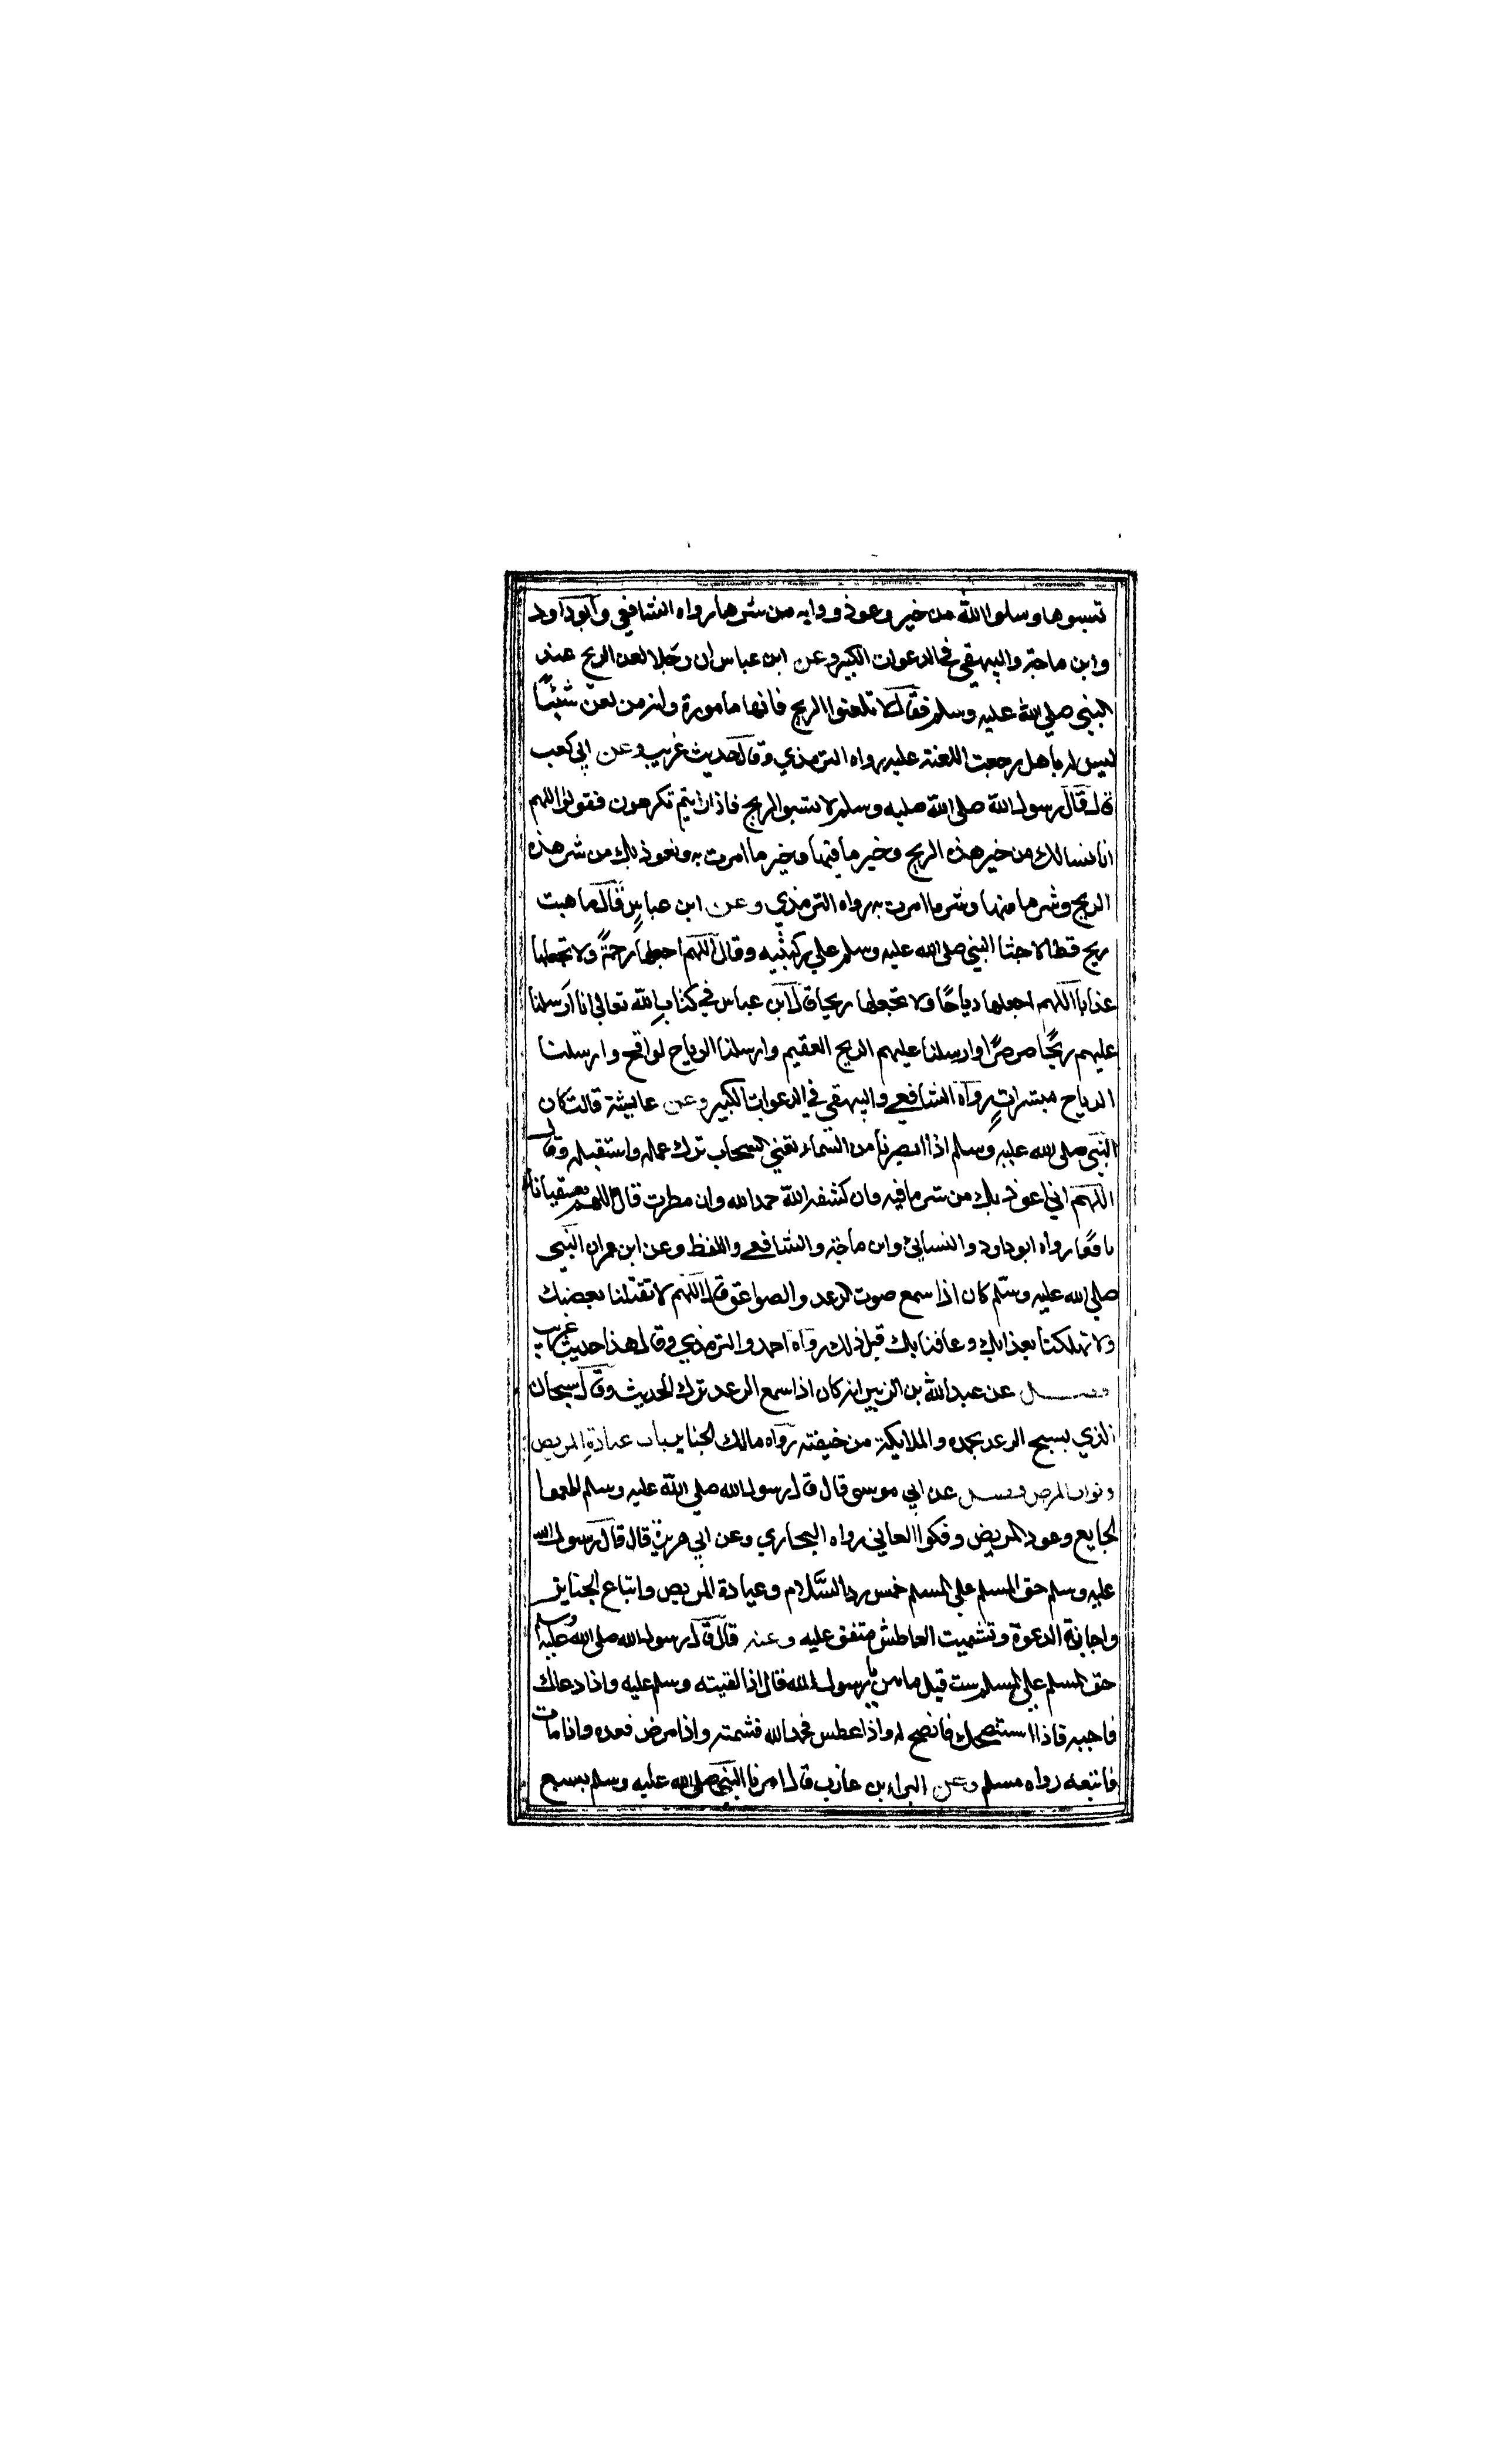 تسبوها وسلوا الله من خير وعوذوا به من شرها رواه الشافعي وابو داود
وابن ماجة والبيهقي في الدعوات الكبير وعن ابن عباس ان رجلا لعن الريح عند
النبي صلي الله عليه وسلم فقال لا تلعنوا الريح فانها مامورة وانه من لعن شيئا
ليس له باهل رجعت اللعنة عليه رواه الترمذي وقال حديث غريب وعن ابي كعب
قال قال رسول الله صلى الله عليه وسلم لا تسبو الريح فاذا رايتم تكرهون فقولوا اللهم
انا نسالك من خير هذه الريح وخير ما فيها وخير ما امرت به ونعوذ بك من شر هذه
الريح وشر ما فيها وشر ما امرت به رواه الترمذي وعن ابن عباس قال ما هبت
ريح قط الا جثا النبي صلى الله عليه وسلم علي ركبتيه وقال اللهم اجعلها رحمة ولا تجعلها
عذابا اللهم اجعلها رياحا ولا تجعلها ريحا قال ابن عباس في كتاب الله تعالي انا ارسلنا
عليهم ريحا صرصرا وارسلنا عليهم الريح العقيم وارسلنا الرياح لواقح وارسلنا
الرياح مبشرات رواه الشافعي والبيهقي في الدعوات الكبير وعن عايشة قالت كان
النبي صلى الله عليه وسلم اذا ابصرنا من السماء تعني السحاب ترك عمله واستقبله وقال
اللهم اني اعوذ بك من شر ما فيه فان كشفه الله حمد الله وان مطرت قال اللهم سقيا نا
نافعا رواه ابو داود والنسائي وابن ماجة والشافعي واللفظ وعن ابن عمر ان النبي
صلي الله عليه وسلم كان اذا سمع صوت الرعد والصواعق قال اللهم لا تقتلنا بغضبك
ولا تهلكنا بعذابك وعافنا بك قبل ذلك رواه احمد والترمذي وقال هذا حديث غريب
فصل عن عبد الله بن الزبير انه كان اذا سمع الرعد ترك الحديث وقال سبحان
الذي يسبح الرعد بحمده والملايكة من خيفته رواه مالك الجنايز باب عيادة المريض
وثواب المرض فصل عن ابي موسى قال قال رسول الله صلي الله عليه وسلم اطعموا
الجايع وعود المريض وفكوا العاني رواه البخاري وعن ابي هريرة قال قال رسول الله
عليه وسلم حق المسلم علي المسلم خمس رد السلام وعيادة المريض واتباع الجنايز
واجابة الدعوة وتشميت العاطش متفق عليه وعنه قال قال رسول الله صلى الله عليه وسلم
حق المسلم علي المسلم ست قيل ما هن يا رسول الله قال اذا لقيته وسلم عليه واذا دعاك
فاجبه فاذا استنصحك فانصح له واذا عطس فحمد الله فشمته واذا مرض فعده واذا مات
فاتبعه رواه مسلم وعن البراء بن عازب قال امرنا النبي صلى الله عليه وسلم بسبع